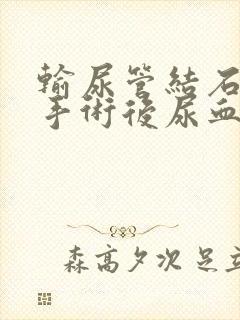 輸尿管結石
手術後尿血
森高夕次 足立